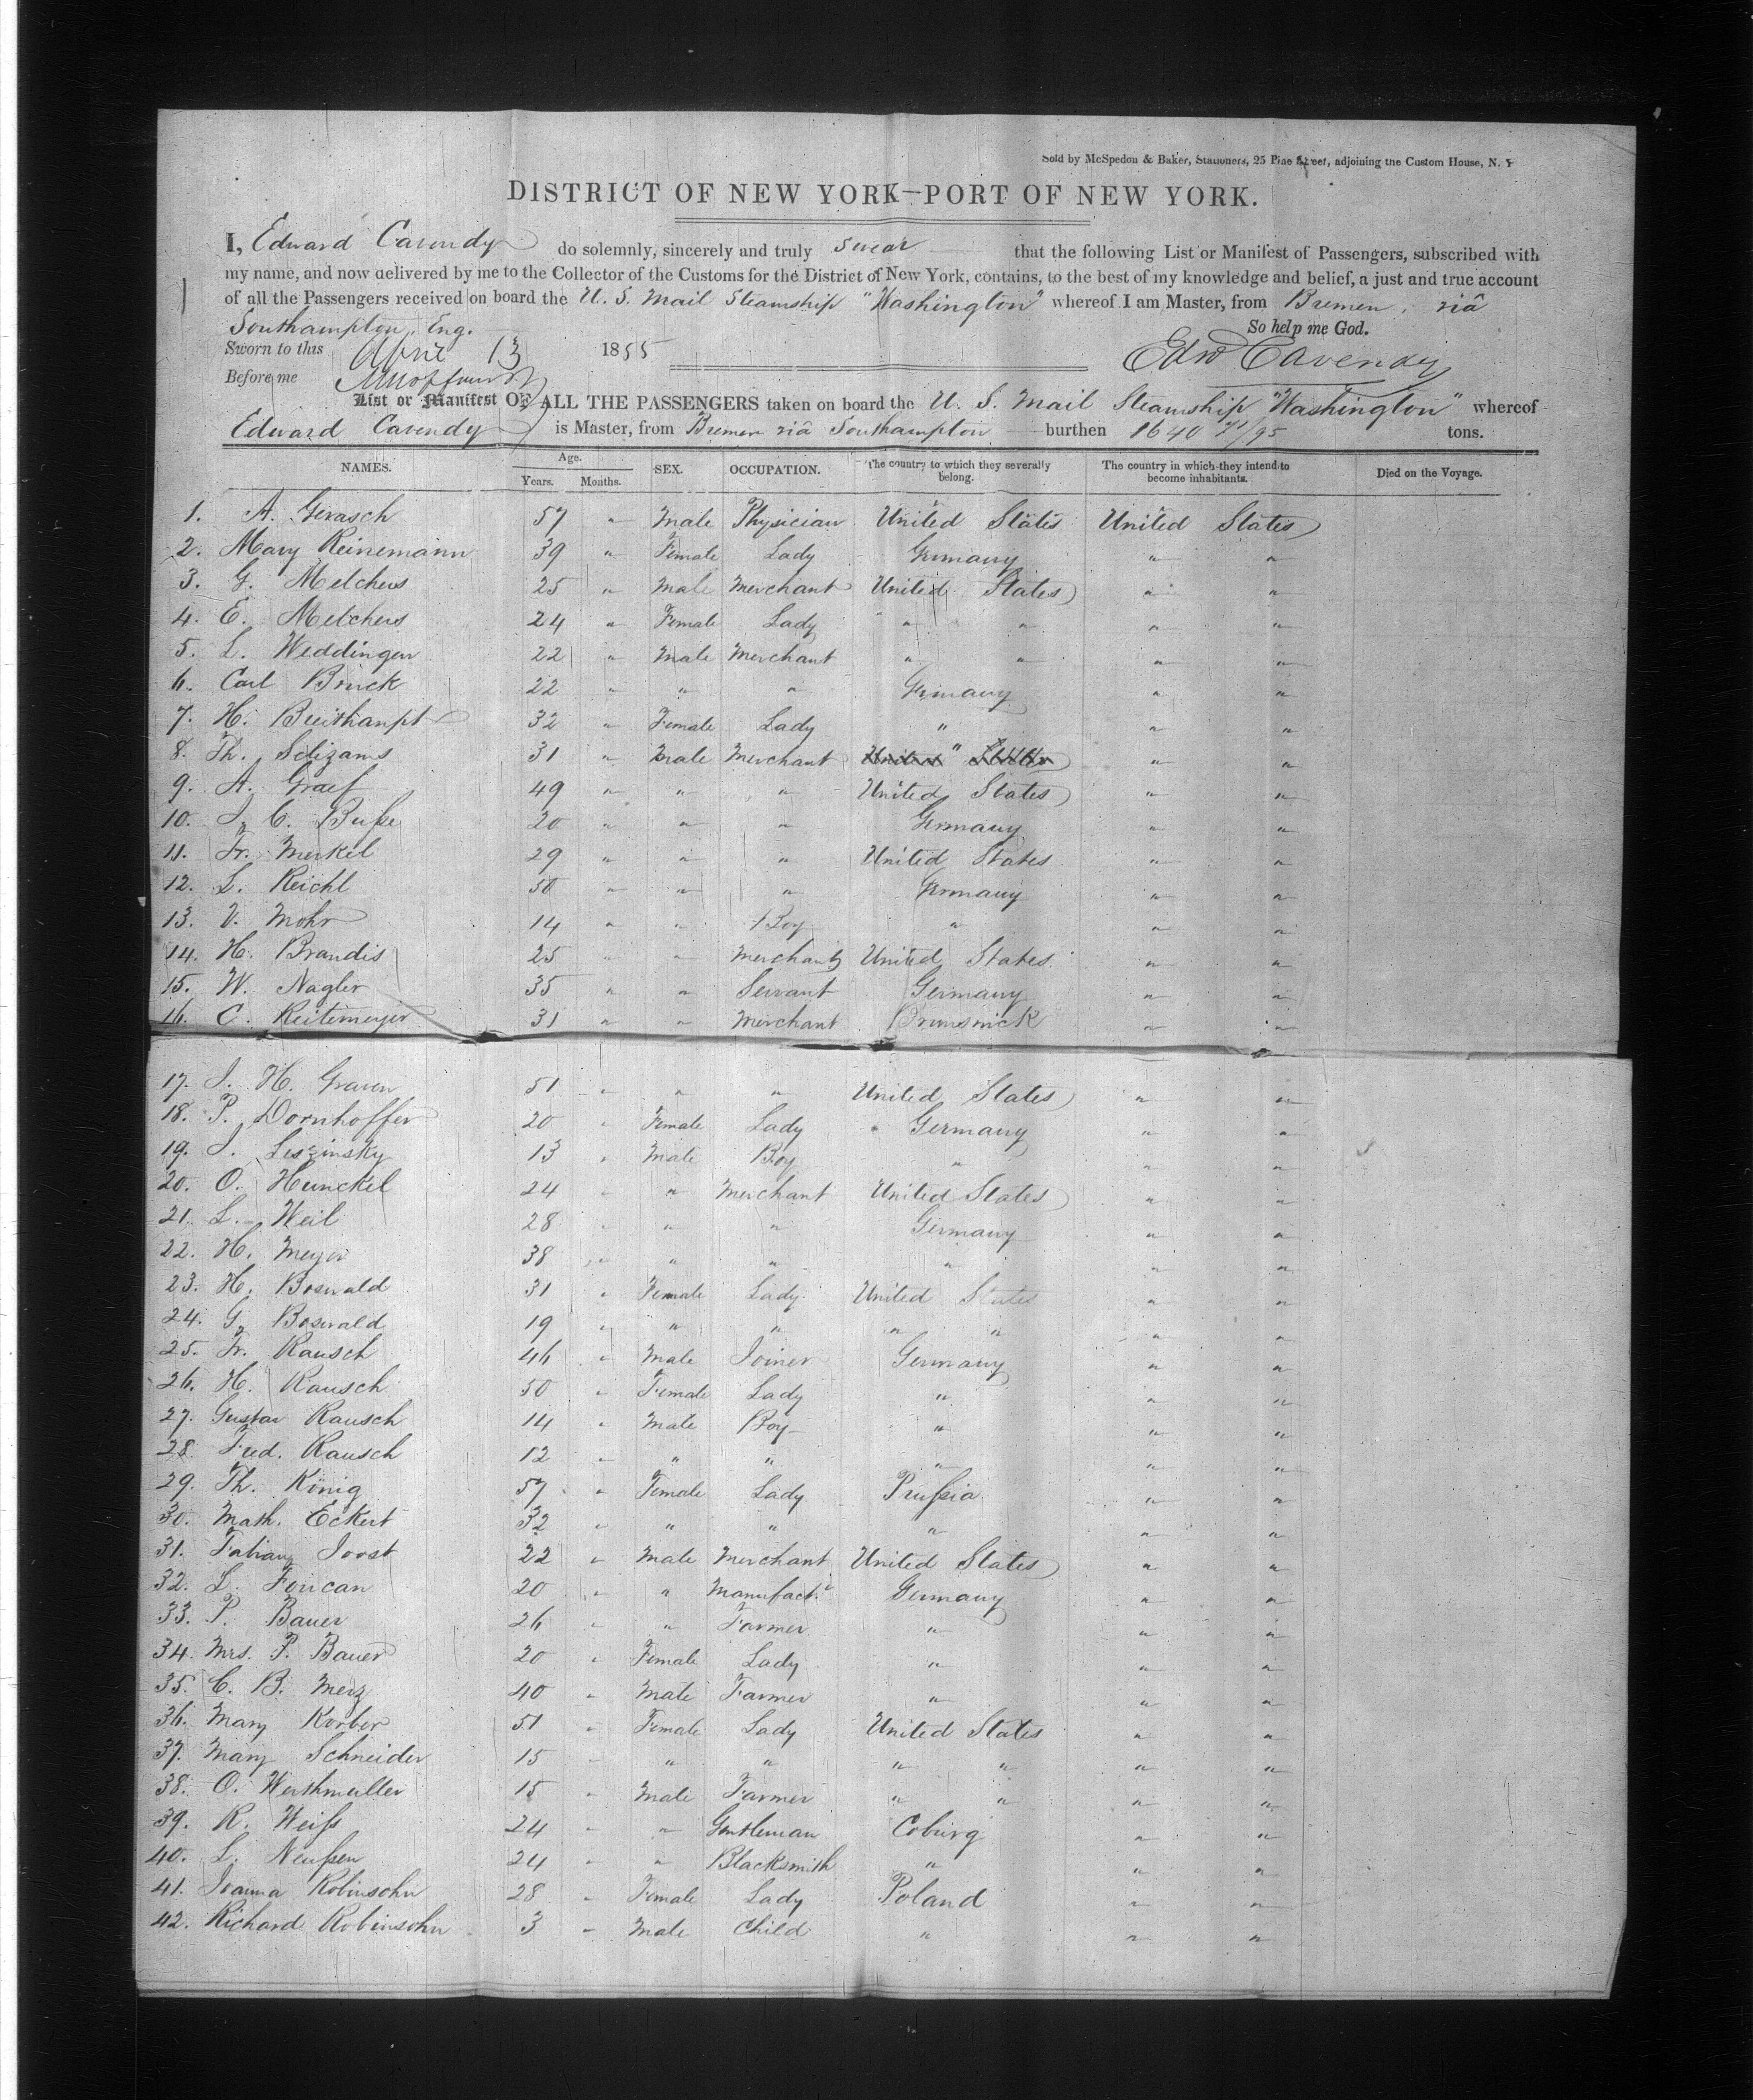 Sold by McSpedon & Baker, Stationers, 25 Pine Street, adjoining the Custom House, N. Y
DISTRICT OF NEW YORK—PORT OF NEW YORK.
I, Edward Cavendy do solemnly, sincerely and truly swear that the following List or Manifest of Passengers, subscribed with
my name, and now delivered by me to the Collector of the Customs for the District of New York, contains, to the best of my knowledge and belief, a just and true account
of all the Passengers received on board the U. S. Mail Steamship "Washington" whereof I am Master, from Bremen, viâ
Southampton, Eng. So help me God.
Sworn to this April 13 1855 Edwd Cavendy
Before me
List or Manifest OF ALL THE PASSENGERS taken on board the U. S. Mail Steamship "Washington" whereof
Edward Cavendy is Master, from Bremen viâ Southampton burthen 1640 71/95 tons.
NAMES. Age. Years. Months. SEX. OCCUPATION. The country to which they severally belong. The country in which they intend to become inhabitants. Died on the Voyage.
1. A. Gerasch 57 " Male Physician United States United States
2. Mary Reinemann 39 " Female Lady Germany " "
3. G. Melchers 25 " Male Merchant United States " "
4. E. Melchers 24 " Female Lady " " " "
5. L. Weddingen 22 " Male Merchant " " " "
6. Carl Brück 22 " " " Germany " "
7. H. Breithaupt 32 " Female Lady " " "
8. Th. 31 " Male Merchant United " States " "
9. A. Graef 49 " " " United States " "
10. J. C. Buße 20 " " " Germany " "
11. Fr. Merkel 29 " " " United States " "
12. L. Reichl 50 " " " Germany " "
13. V. Mohr 14 " " Boy " " "
14. H. Brandis 25 " " Merchant United States " "
15. W. Nagler 35 " " Servant Germany " "
16. C. Reitemeyer 31 " " Merchant Brunswick " "
17. J. H. Graven 51 " " " United States " "
18. P. Dornhoffer 20 " Female Lady Germany " "
19. J. Leszinsky 13 " Male Boy " " "
20. O. Hunckel 24 " " Merchant United States " "
21. L. Weil 28 " " " Germany " "
22. H. Meyer 38 " " " " " "
23. H. Boswald 31 " Female Lady United States " "
24. G. Boswald 19 " " " " " " "
25. Fr. Rausch 46 " Male Joiner Germany " "
26. H. Rausch 50 " Female Lady " " "
27. Gustav Rausch 14 " Male Boy " " "
28. Fred. Rausch 12 " " " " " "
29. Th. König 57 " Female Lady Prußia " "
30. Math. Eckert 32 " " " " " "
31. Fabian Joost 22 " Male Merchant United States " "
32. L. Foucan 20 " " Manufact.r Germany " "
33. P. Bauer 26 " " Farmer " " "
34. Mrs. P. Bauer 20 " Female Lady " " "
35. C. B. Merz 40 " Male Farmer " " "
36. Mary Korber 51 " Female Lady United States " "
37. Mary Schneider 15 " " " " " " "
38. O. Werthmuller 15 " Male Farmer " " " "
39. R. Weiß 24 " " Gentleman Coburg " "
40. L. Neußen 24 " " Blacksmith " " "
41. Joanna Robinsohn 28 " Female Lady Poland " "
42. Richard Robinsohn 3 " Male Child " " "